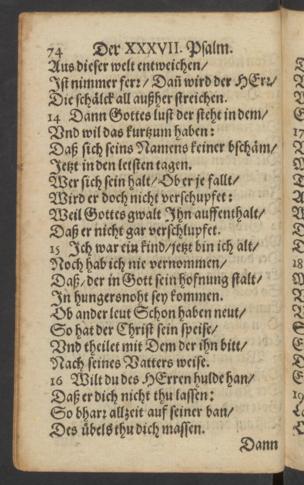 74 Der XXXVII. Psalm.
Aus dieser welt entweichen/
Ist nimmer ferr/ Dañ wird der HErr/
Die schälck all außher streichen.
14 Dann Gottes lust der steht in dem/
Vnd wil das kurtzum haben:
Daß sich seins Namens keiner bschäm/
Jetzt in den letsten tagen.
Wer sich sein halt/ Ob er je fallt/
Wird er doch nicht verschupfet:
Weil Gottes gwalt Ihn auffenthalt/
Daß er nicht gar verschlupfet.
15 Ich war ein kind/ jetzt bin ich alt/
Noch hab ich nie vernommen/
Daß/ der in Gott sein hofnung stalt/
In hungersnoht sey kommen.
Ob ander leut Schon haben neut/
So hat der Christ sein speise/
Vnd theilet mit Dem der ihn bitt/
Nach seines Vatters weise.
16 Wilt du des HErren hulde han/
Daß er dich nicht thu lassen:
So bharr allzeit auf seiner ban/
Des übels thu dich massen.
Dann